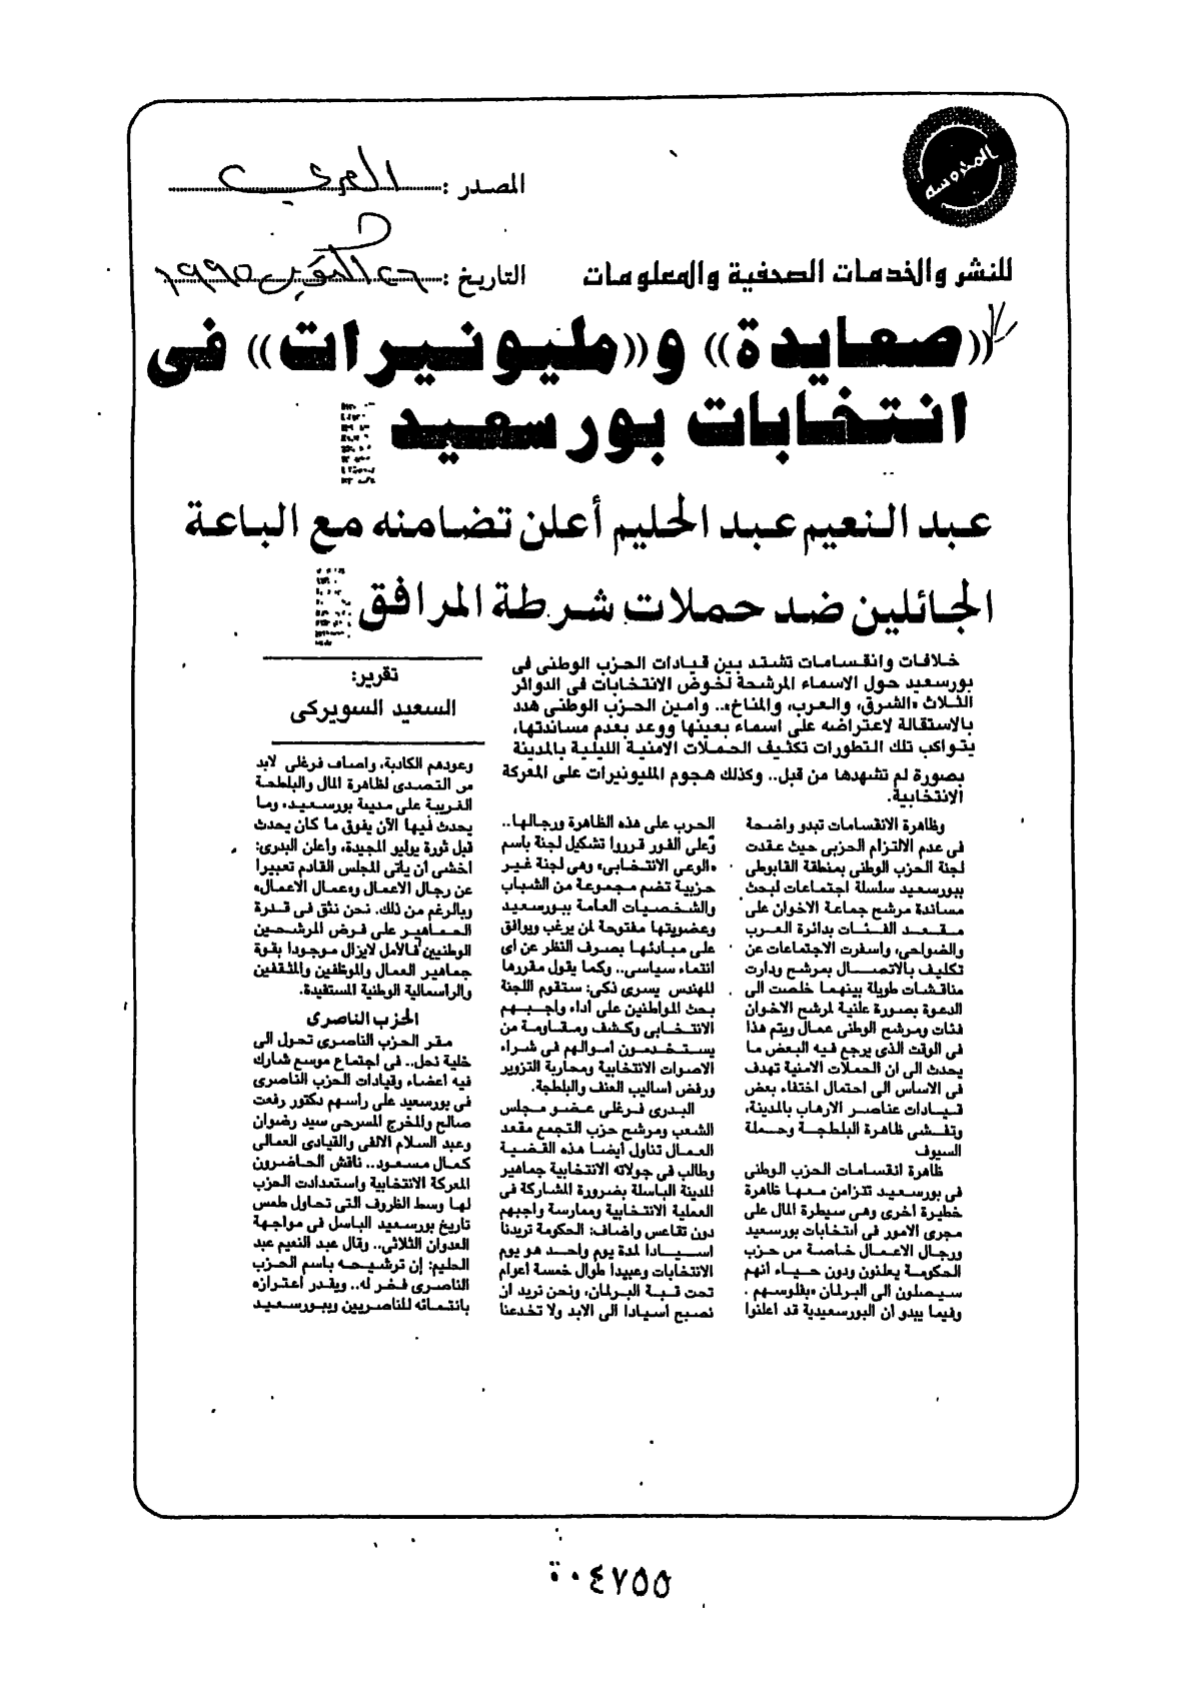 المحروسة
المصدر : العربي
للنشر والخدمات الصحفية والمعلومات
التاريخ : ٢٦ أكتوبر ١٩٩٥
«صعايدة» و«مليونيرات» فى
انتخابات بور سعيد
عبد النعيم عبد الحليم أعلن تضامنه مع الباعة
الجائلين ضد حملات شرطة المرافق
خلافات وانقسامات تشتد بين قيادات الحزب الوطنى فى
بورسعيد حول الاسماء المرشحة لخوض الانتخابات فى الدوائر
الثلاث «الشرق، والعرب، والمناخ».. وأمين الحزب الوطنى هدد
بالاستقالة لاعتراضه على اسماء بعينها ووعد بعدم مساندتها،
يتواكب تلك التطورات تكثيف الحملات الامنية الليلية بالمدينة
بصورة لم تشهدها من قبل.. وكذلك هجوم المليونيرات على المعركة
الانتخابية.
تقرير:
السعيد السويركى
وظاهرة الانقسامات تبدو واضحة
فى عدم الالتزام الحزبى حيث عقدت
لجنة الحزب الوطنى بمنطقة القابوطى
ببورسعيد سلسلة اجتماعات لبحث
مساندة مرشح جماعة الاخوان على
مقعد الفئات بدائرة العرب
والضواحى، واسفرت الاجتماعات عن
تكليف بالاتصال بمرشح ودارت
مناقشات طويلة بينهما خلصت الى
الدعوة بصورة علنية لمرشح الاخوان
فئات ومرشح الوطنى عمال ويتم هذا
فى الوقت الذى يرجع فيه البعض ما
يحدث الى ان الحملات الامنية تهدف
فى الاساس الى احتمال اختفاء بعض
قيادات عناصر الارهاب بالمدينة،
وتفشى ظاهرة البلطجة وحملة
السيوف
ظاهرة انقسامات الحزب الوطنى
فى بورسعيد تتزامن معها ظاهرة
خطيرة اخرى وهى سيطرة المال على
مجرى الامور فى انتخابات بورسعيد
ورجال الاعمال خاصة من حزب
الحكومة يعلنون ودون حياء أنهم
سيصلون الى البرلمان «بفلوسهم».
وفيما يبدو أن البورسعيدية قد اعلنوا
الحرب على هذه الظاهرة ورجالها..
وعلى الفور قرروا تشكيل لجنة باسم
«الوعى الانتخابى» وهى لجنة غير
حزبية تضم مجموعة من الشباب
والشخصيات العامة ببورسعيد
وعضويتها مفتوحة لمن يرغب ويوافق
على مبادئها بصرف النظر عن اى
انتماء سياسى.. وكما يقول مقررها
المهندس يسرى ذكى: ستقوم اللجنة
بحث المواطنين على أداء واجبهم
الانتخابى وكشف ومقاومة من
يستخدمون أموالهم فى شراء
الاصوات الانتخابية ومحاربة التزوير
ورفض اساليب العنف والبلطجة.
البدرى فرغلى عضو مجلس
الشعب ومرشح حزب التجمع مقعد
العمال تناول أيضا هذه القضية
وطالب فى جولاته الانتخابية جماهير
المدينة الباسلة بضرورة المشاركة فى
العملية الانتخابية وممارسة واجبهم
دون تقاعس واضاف: الحكومة تريدنا
اسيادا لمدة يوم واحد هو يوم
الانتخابات وعبيدا طوال خمسة أعوام
تحت قبة البرلمان، ونحن نريد ان
نصبح أسيادا الى الابد ولا تخدعنا
وعودهم الكاذبة، واضاف فرغلى لابد
من التصدى لظاهرة المال والبلطجة
الغريبة على مدينة بورسعيد، وما
يحدث فيها الآن يفوق ما كان يحدث
قبل ثورة يوليو المجيدة، وأعلن البدرى:
أخشى أن يأتى المجلس القادم تعبيرا
عن رجال الاعمال و«عمال الاعمال»
وبالرغم من ذلك. نحن نثق فى قدرة
الجماهير على فرض المرشحين
الوطنيين فالأمل لايزال موجودا بقوة
جماهير العمال والموظفين والمثقفين
والرأسمالية الوطنية المستفيدة.
الحزب الناصرى
مقر الحزب الناصرى تحول الى
خلية نحل.. فى اجتماع موسع شارك
فيه اعضاء وقيادات الحزب الناصرى
فى بورسعيد على رأسهم دكتور رفعت
صالح والمخرج المسرحى سيد رضوان
وعبد السلام الالفى والقيادى العمالى
كمال مسعود.. ناقش الحاضرون
المعركة الانتخابية واستعدادت الحزب
لها وسط الظروف التى تحاول طمس
تاريخ بورسعيد الباسل فى مواجهة
العدوان الثلاثى.. وقال عبد النعيم عبد
الحليم: إن ترشيحه باسم الحزب
الناصرى فخر له.. ويقدر اعتزازه
بانتمائه للناصريين وببورسعيد
٠٤٧٥٥